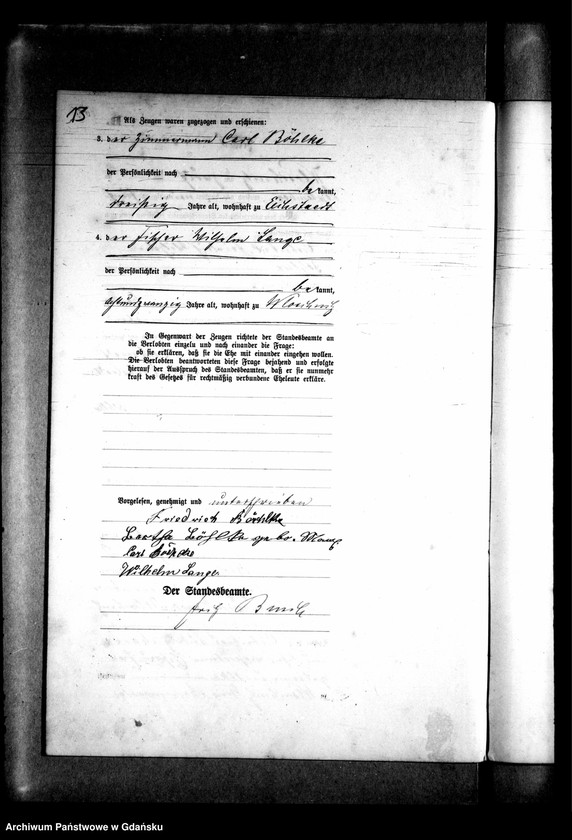 13
Als Zeugen waren zugezogen und erschienen:
3. der Zimmermann Carl Böhlke
der Persönlichkeit nach
bekannt,
dreißig Jahre alt, wohnhaft zu Eichstaedt
4. der Fischer Wilhelm Lange
der Persönlichkeit nach
bekannt,
achtundzwanzig Jahre alt, wohnhaft zu
In Gegenwart der Zeugen richtete der Standesbeamte an
die Verlobten einzeln und nach einander die Frage:
ob sie erklären, daß sie die Ehe mit einander eingehen wollen.
Die Verlobten beantworteten diese Frage bejahend und erfolgte
hierauf der Ausspruch des Standesbeamten, daß er sie nunmehr
kraft des Gesetzes für rechtmäßig verbundene Eheleute erkläre.
Vorgelesen, genehmigt und unterschrieben
Friedrich Böhlke
Bertha Böhlke gebr.
Carl Böhlke
Wilhelm Lange
Der Standesbeamte.
Archiwum Państwowe w Gdańsku